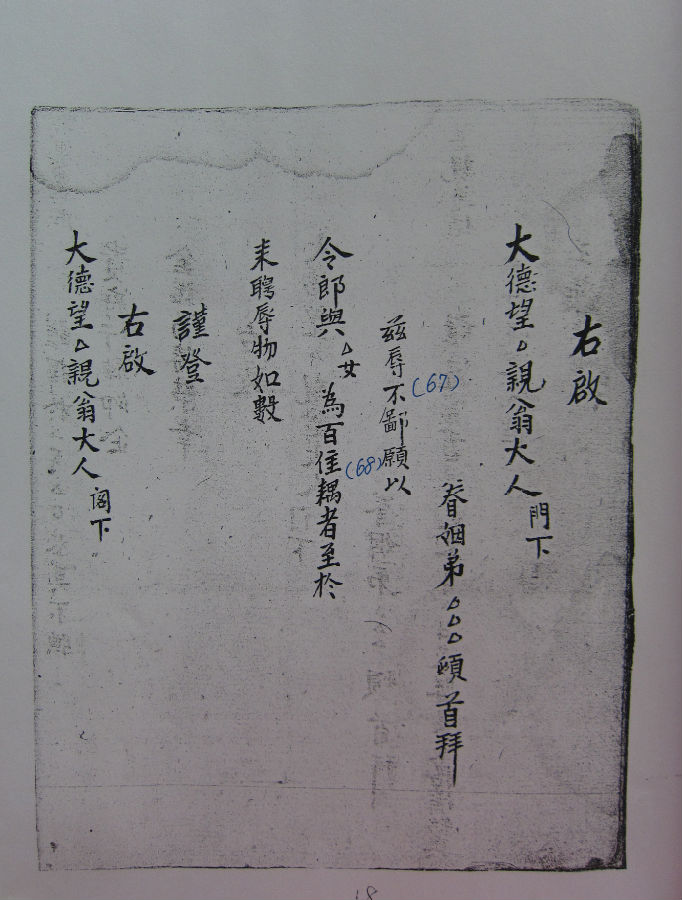 右啟
大德望△親翁大人門下
眷姻弟△△△頓首拜
茲辱不鄙願以
(67)
令郎與△女為百佳耦者至於
(68)
来聘辱物如數
謹登
右啟
大德望△親翁大人阁下
18